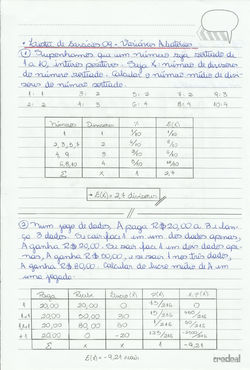 • Lista de Exercícios 09 - Variáveis Aleatórias
① Suponhamos que um número seja sorteado de
1 a 10, inteiro positivo. Seja X: número de divisores
do número sorteado. Calcular o número médio de divi-
sores do número sorteado.
1: 1 3: 2 5: 2 7: 2 9: 3
2: 2 4: 3 6: 4 8: 4 10: 4
Números Divisores
1 1 1/10 1/10
2, 3, 5, 7 2 4/10 8/10
4, 9 3 2/10 6/10
6, 8, 10 4 3/10 12/10
Σ x 1 2,7
E(X) = 2,7 divisores
② Num jogo de dados, A paga R$20,00 a B e lan-
ça 3 dados. Se sair face 1 em um dos dados apenas,
A ganha R$20,00. Se sair face 1 em dois dados ape-
nas, A ganha R$50,00, e se sair 1 nos três dados,
A ganha R$80,00. Calcular o lucro médio de A em
uma jogada.
Paga Recebe Lucro(X) P(X) X.P(X)
1 20,00 20,00 0 75/216 0
1+1 20,00 50,00 30 15/216 450/216
1+1+1 20,00 80,00 60 1/216 60/216
20,00 0 -20 125/216 -2500/216
Σ x x 1 -9,21
E(X) = -9,21 reais
credeal